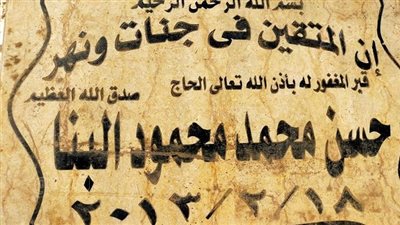 بسم الله الرحمن الرحيم
إن المتقين فى جنات ونهر
صدق الله العظيم
قبر المغفور له بأذن الله تعالى الحاج
حسن محمد محمود البنا
٢٠١٣/٢/١٨